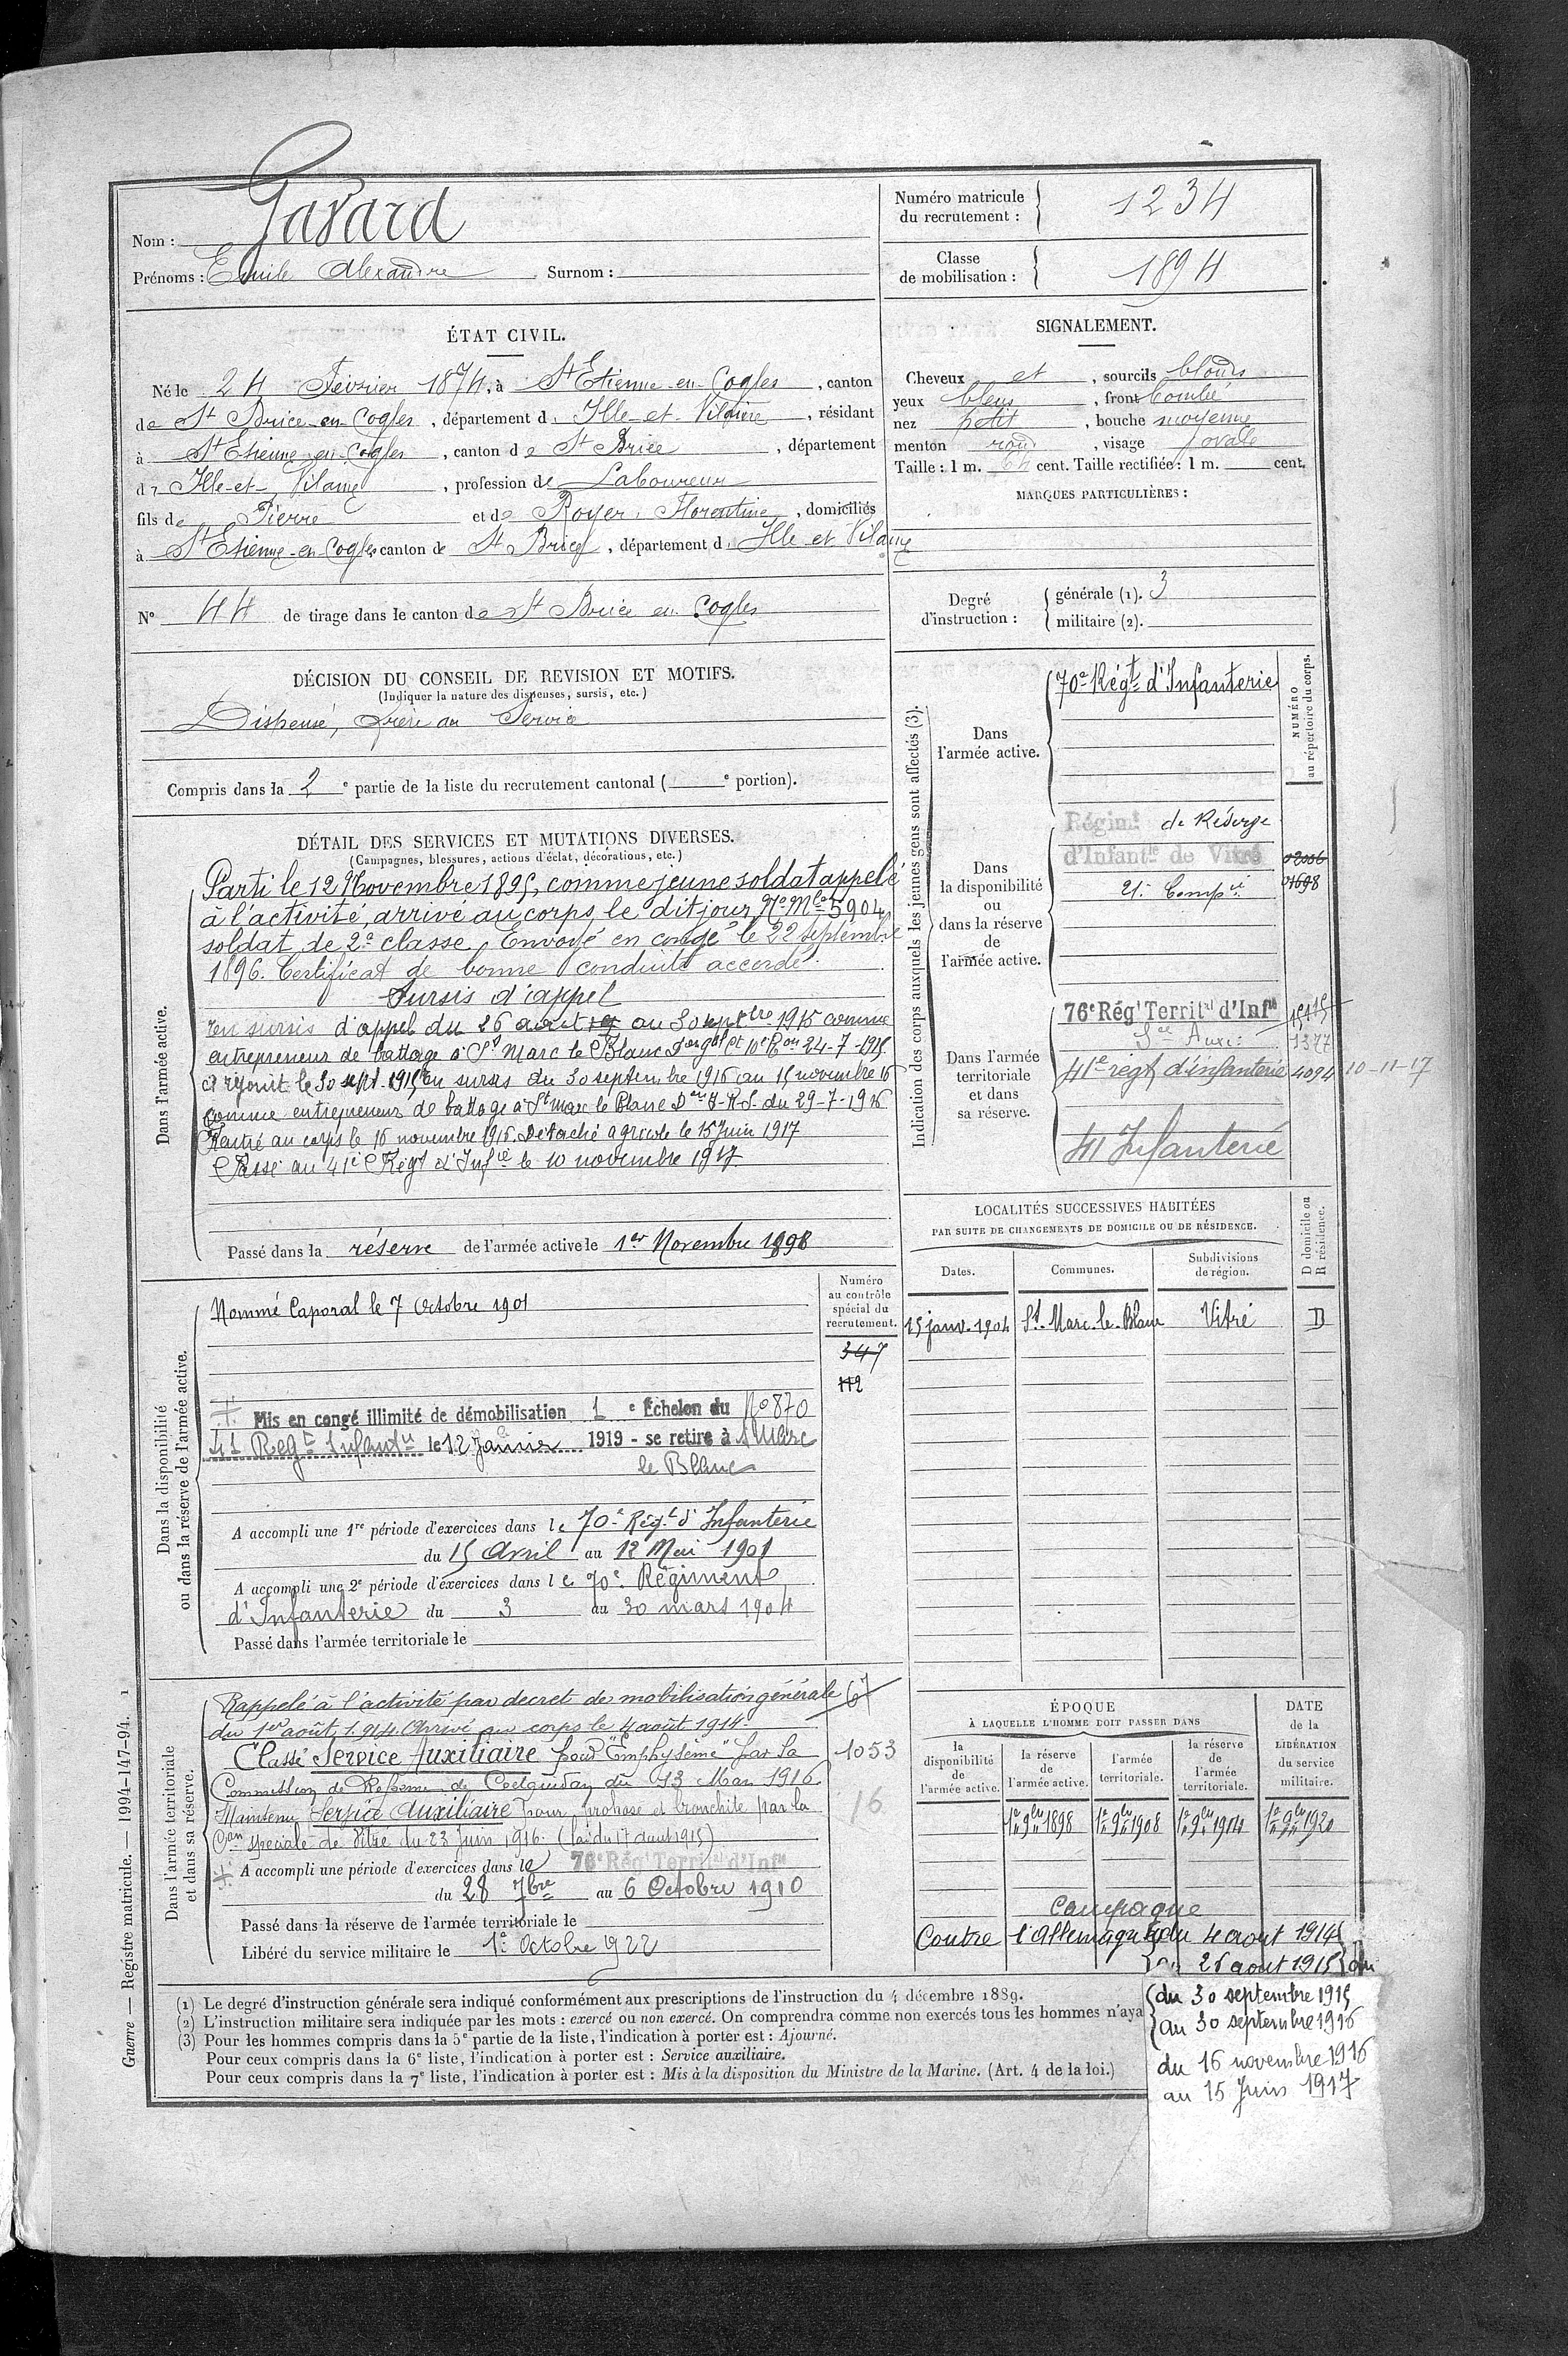 Nom : Gavard
Prénoms : Emile Alexandre Surnom :
Numéro matricule
du recrutement : 1234
Classe
de mobilisation : 1894
ÉTAT CIVIL.
Né le 24 Février 1874, à St Etienne-en-Cogles, canton
de St Brice-en-Cogles, département d Ille-et-Vilaine, résidant
à St Etienne-en-Cogles, canton de St Brice, département
d Ille-et-Vilaine, profession de Laboureur
fils de Pierre et de Royer, Florentine, domiciliés
à St Etienne-en-Cogles canton de St Brice, département d Ille et Vilaine
N° 44 de tirage dans le canton de St Brice en Cogles
SIGNALEMENT.
Cheveux et, sourcils blonds
yeux bleus, front bombé
nez petit, bouche moyenne
menton rond, visage ovale
Taille : 1 m. 64 cent. Taille rectifiée : 1 m. cent.
MARQUES PARTICULIÈRES :
Degré
d'instruction :
générale (1). 3
militaire (2).
DÉCISION DU CONSEIL DE REVISION ET MOTIFS.
(Indiquer la nature des dispenses, sursis, etc.)
Dispensé, frère au Service
Compris dans la 2e partie de la liste du recrutement cantonal ( e portion).
DÉTAIL DES SERVICES ET MUTATIONS DIVERSES.
(Campagnes, blessures, actions d'éclat, décorations, etc.)
Dans l'armée active.
Parti le 12 Novembre 1895, comme jeune soldat appelé
à l'activité, arrivé au corps le dit jour, No Mle 5904
soldat de 2e classe. Envoyé en congé le 22 Septembre
1896. Certificat de bonne conduite accordé.
Sursis d'appel
En sursis d'appel du 26 aout au 30 septbre 1915 comme
entrepreneur de battage à St Marc le Blanc 24-7-1915
A rejoint le 30 sept. 1915 en sursis du 30 septembre 1916 au 15 novembre 16
comme entrepreneur de battage à St Marc le Blanc du 29-7-1916
Rentré au corps le 16 novembre 1916. Détaché agricole le 15 Juin 1917
Passé au 41e Régt d'Infie le 10 novembre 1917
Passé dans la réserve de l'armée active le 1er Novembre 1898
Indication des corps auxquels les jeunes gens sont affectés (3).
NUMÉRO
au répertoire du corps.
Dans
l'armée active.
70e Régt d'Infanterie
Dans
la disponibilité
ou
dans la réserve
de
l'armée active.
Régimt de Réserve
d'Infantie de Vitré
21e Compie
01698
Dans l'armée
territoriale
et dans
sa réserve.
76e Régt Territal d'Infie
Sce Auxi:
1377
41e régt d'infanterie 4094 10-11-17
41 Infanterie
LOCALITÉS SUCCESSIVES HABITÉES
PAR SUITE DE CHANGEMENTS DE DOMICILE OU DE RÉSIDENCE.
Dates.
Communes.
Subdivisions
de région.
D domicile ou
R résidence.
15 janv. 1904 St. Marc-le-Blanc Vitré D
Dans la disponibilité
ou dans la réserve de l'armée active.
Numéro
au contrôle
spécial du
recrutement.
347
112
Nommé Caporal le 7 Octobre 1901
Mis en congé illimité de démobilisation 1 e Echelon du No 870
41 Régt Infantie le 12 Janvier 1919 - se retire à St Marc
le Blanc
A accompli une 1re période d'exercices dans le 70e Régt d'Infanterie
du 15 Avril au 12 Mai 1901
A accompli une 2e période d'exercices dans le 70e Régiment
d'Infanterie du 3 au 30 mars 1904
Passé dans l'armée territoriale le
Dans l'armée territoriale
et dans sa réserve.
Rappelé à l'activité par decret de mobilisation générale 67
du 1er août 1914. Arrivé au corps le 4 août 1914.
Classé Service Auxiliaire pour "Emphysème" par la 1053
Commission de Réforme de Coetquidan du 13 Mars 1916
Maintenu Service Auxiliaire pour ptose et bronchite par la 16
Con spéciale de Vitré du 23 Juin 1916. (loi du 17 aout 1915)
A accompli une période d'exercices dans le 76e Régt Territal d'Infie
du 28 7bre au 6 Octobre 1910
Passé dans la réserve de l'armée territoriale le
Libéré du service militaire le 1er Octobre 1922
ÉPOQUE
À LAQUELLE L'HOMME DOIT PASSER DANS
la
disponibilité
de
l'armée active.
la réserve
de
l'armée active.
l'armée
territoriale.
la réserve
de
l'armée
territoriale.
DATE
de la
LIBÉRATION
du service
militaire.
1er 9bre 1898 1er 9bre 1908 1er 9bre 1904 1er 9bre 1920
Campagne
Contre l'Allemagne du 4 aout 1914
au 26 aout 1915
du 30 septembre 1915
au 30 septembre 1916
du 16 novembre 1916
au 15 Juin 1917
(1) Le degré d'instruction générale sera indiqué conformément aux prescriptions de l'instruction du 4 décembre 1889.
(2) L'instruction militaire sera indiquée par les mots : exercé ou non exercé. On comprendra comme non exercés tous les hommes n'aya
(3) Pour les hommes compris dans la 5e partie de la liste, l'indication à porter est : Ajourné.
Pour ceux compris dans la 6e liste, l'indication à porter est : Service auxiliaire.
Pour ceux compris dans la 7e liste, l'indication à porter est : Mis à la disposition du Ministre de la Marine. (Art. 4 de la loi.)
Guerre — Registre matricule. — 1994-147-94. 1